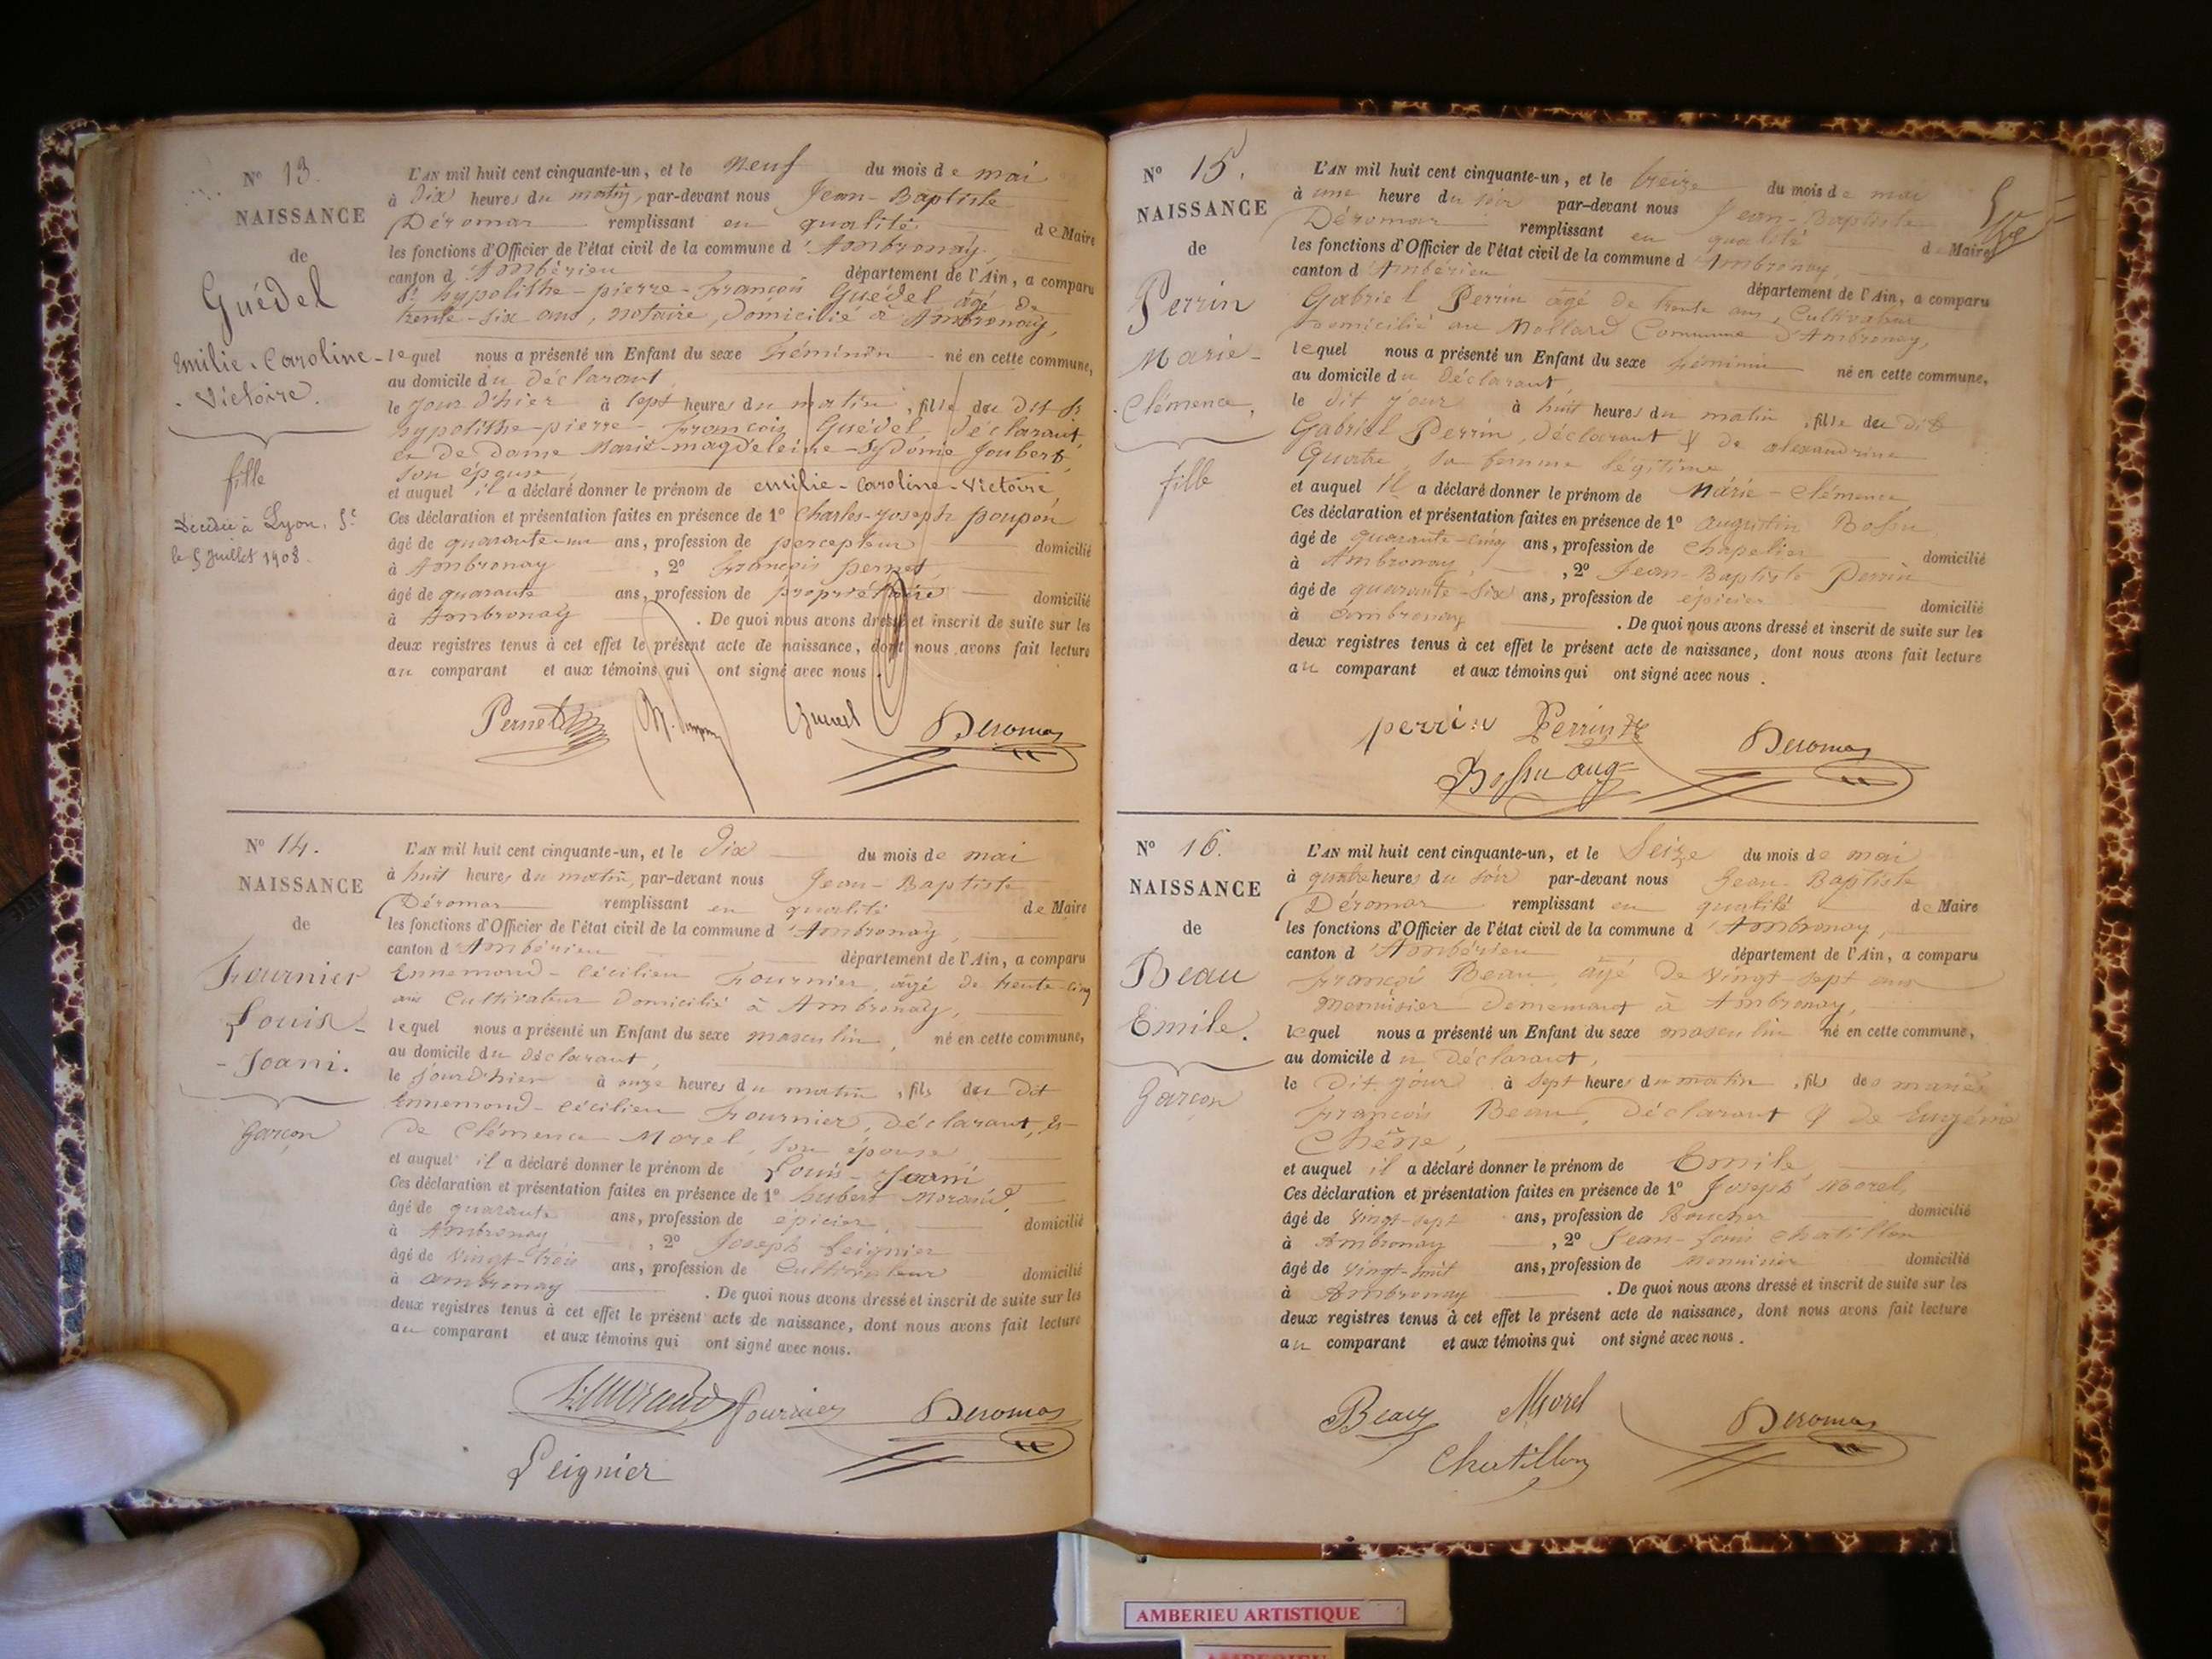 N° 13.
NAISSANCE
de
Guédel
Emilie-Caroline-
-Victoire.
fille
Décédée à Lyon, 5e
le 5 Juillet 1908.
L'AN mil huit cent cinquante-un, et le Neuf du mois de mai
à Dix heures du matin, par-devant nous Jean-Baptiste
Déromas remplissant en qualité de Maire
les fonctions d'Officier de l'état civil de la commune d'Ambronay,
canton d'Ambérieu département de l'Ain, a comparu
Sr hypolithe-pierre-françois Guédel âgé de
trente-six ans, notaire, domicilié à Ambronay,
lequel nous a présenté un Enfant du sexe Féminin né en cette commune,
au domicile du déclarant,
le jour d'hier à sept heures du matin, fille du dit Sr
hypolithe-pierre-françois Guédel, déclarant,
et de dame Marie-magdeleine-Sydonie Joubert,
son épouse,
et auquel il a déclaré donner le prénom de emilie-Caroline-Victoire,
Ces déclaration et présentation faites en présence de 1° Charles-Joseph poupon
âgé de quarante-un ans, profession de percepteur domicilié
à Ambronay, 2° François pernet,
âgé de quarante ans, profession de propriétaire domicilié
à Ambronay. De quoi nous avons dressé et inscrit de suite sur les
deux registres tenus à cet effet le présent acte de naissance, dont nous avons fait lecture
au comparant et aux témoins qui ont signé avec nous.
Pernet Guedel Deromas
N° 14.
NAISSANCE
de
Fournier
Louis-
-Joani.
Garçon
L'AN mil huit cent cinquante-un, et le Dix du mois de mai
à huit heures du matin, par-devant nous Jean-Baptiste
Déromas remplissant en qualité de Maire
les fonctions d'Officier de l'état civil de la commune d'Ambronay,
canton d'Ambérieu département de l'Ain, a comparu
Ennemond-Cécilien Fournier, âgé de trente-cinq
ans Cultivateur domicilié à Ambronay,
lequel nous a présenté un Enfant du sexe masculin, né en cette commune,
au domicile du déclarant,
le jour d'hier à onze heures du matin, fils du dit
Ennemond-Cécilien Fournier, déclarant, et
de Clémence Morel, son épouse
et auquel il a déclaré donner le prénom de Louis-Joani
Ces déclaration et présentation faites en présence de 1° hubert Moraud,
âgé de quarante ans, profession de épicier, domicilié
à Ambronay, 2° Joseph Leignier
âgé de Vingt-trois ans, profession de Cultivateur domicilié
à Ambronay. De quoi nous avons dressé et inscrit de suite sur les
deux registres tenus à cet effet le présent acte de naissance, dont nous avons fait lecture
au comparant et aux témoins qui ont signé avec nous.
h. Moraud fournier Deromas
Leignier
N° 15.
NAISSANCE
de
Perrin
Marie-
-Clémence,
fille
L'AN mil huit cent cinquante-un, et le treize du mois de mai
à une heure du soir par-devant nous Jean-Baptiste
Déromas remplissant en qualité de Maire
les fonctions d'Officier de l'état civil de la commune d'Ambronay,
canton d'Ambérieu département de l'Ain, a comparu
Gabriel Perrin âgé de trente ans, Cultivateur
domicilié au Mollard Commune d'Ambronay,
lequel nous a présenté un Enfant du sexe féminin né en cette commune,
au domicile du déclarant,
le dit jour à huit heures du matin, fille du dit
Gabriel Perrin, déclarant & de alexandrine
Quatre, sa femme légitime
et auquel il a déclaré donner le prénom de Marie-Clémence
Ces déclaration et présentation faites en présence de 1° augustin Bossu,
âgé de quarante-cinq ans, profession de Chapelier domicilié
à Ambronay, 2° Jean-Baptiste Perrin
âgé de quarante-six ans, profession de epicier domicilié
à ambronay. De quoi nous avons dressé et inscrit de suite sur les
deux registres tenus à cet effet le présent acte de naissance, dont nous avons fait lecture
au comparant et aux témoins qui ont signé avec nous.
perrin Perrin Deromas
Bossu aug
N° 16.
NAISSANCE
de
Beau
Emile.
Garçon
L'AN mil huit cent cinquante-un, et le Seize du mois de mai
à quatre heures du soir par-devant nous Jean-Baptiste
Déromas remplissant en qualité de Maire
les fonctions d'Officier de l'état civil de la commune d'Ambronay,
canton d'Ambérieu département de l'Ain, a comparu
François Beau, âgé de vingt-sept ans
menuisier demeurant à Ambronay,
lequel nous a présenté un Enfant du sexe masculin né en cette commune,
au domicile du déclarant,
le dit jour à sept heures du matin, fils des mariés
François Beau, déclarant & de Eugénie
Chêne,
et auquel il a déclaré donner le prénom de Emile,
Ces déclaration et présentation faites en présence de 1° Joseph Morel,
âgé de vingt-sept ans, profession de Boucher domicilié
à Ambronay, 2° Jean-Louis Chatillon
âgé de vingt-huit ans, profession de menuisier domicilié
à Ambronay. De quoi nous avons dressé et inscrit de suite sur les
deux registres tenus à cet effet le présent acte de naissance, dont nous avons fait lecture
au comparant et aux témoins qui ont signé avec nous.
Beau Morel Deromas
Chatillon
AMBERIEU ARTISTIQUE
AMBERIEU